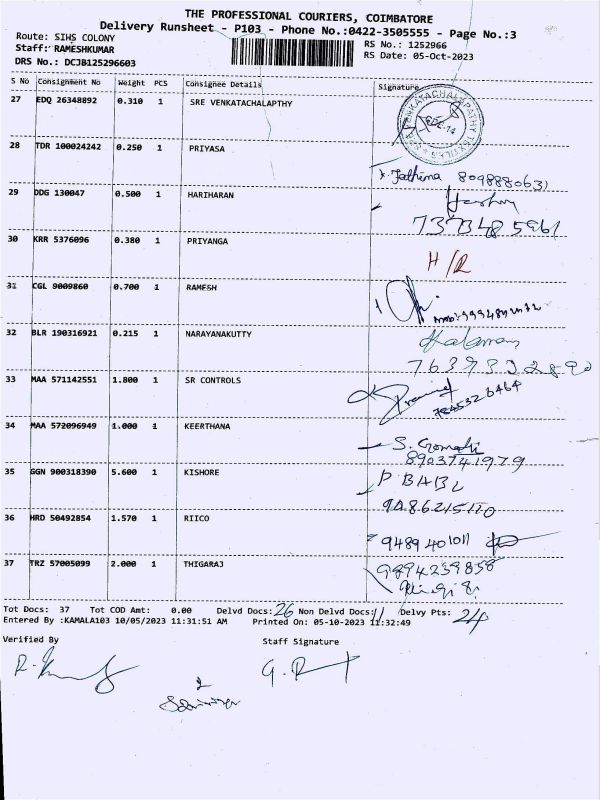 THE PROFESSIONAL COURIERS, COIMBATORE
Delivery Runsheet - P103 - Phone No.:0422-3505555 - Page No.:3
Route: SIHS COLONY
RS No.: 1252966
Staff: RAMESHKUMAR
RS Date: 05-Oct-2023
DRS No.: DCJB125296603
S No Consignment No Weight PCS Consignee Details Signature
27 EDQ 26348892 0.310 1 SRE VENKATACHALAPTHY
28 TDR 100024242 0.250 1 PRIYASA
Fathima 8098880631
29 DDG 130047 0.500 1 HARIHARAN
7373485961
30 KRR 5376096 0.380 1 PRIYANGA
H/R
31 CGL 9009860 0.700 1 RAMESH
32 BLR 190316921 0.215 1 NARAYANAKUTTY
33 MAA 571142551 1.800 1 SR CONTROLS
34 MAA 572096949 1.000 1 KEERTHANA
S. Gomathi
8903741979
35 GGN 900318390 5.600 1 KISHORE
P BABU
9486215110
36 HRD 50492854 1.570 1 RIICO
9489401011
37 TRZ 57005099 2.000 1 THIGARAJ
9894239858
Tot Docs: 37 Tot COD Amt: 0.00 Delvd Docs: 26 Non Delvd Docs: 11 Delvy Pts: 24
Entered By :KAMALA103 10/05/2023 11:31:51 AM Printed On: 05-10-2023 11:32:49
Verified By Staff Signature